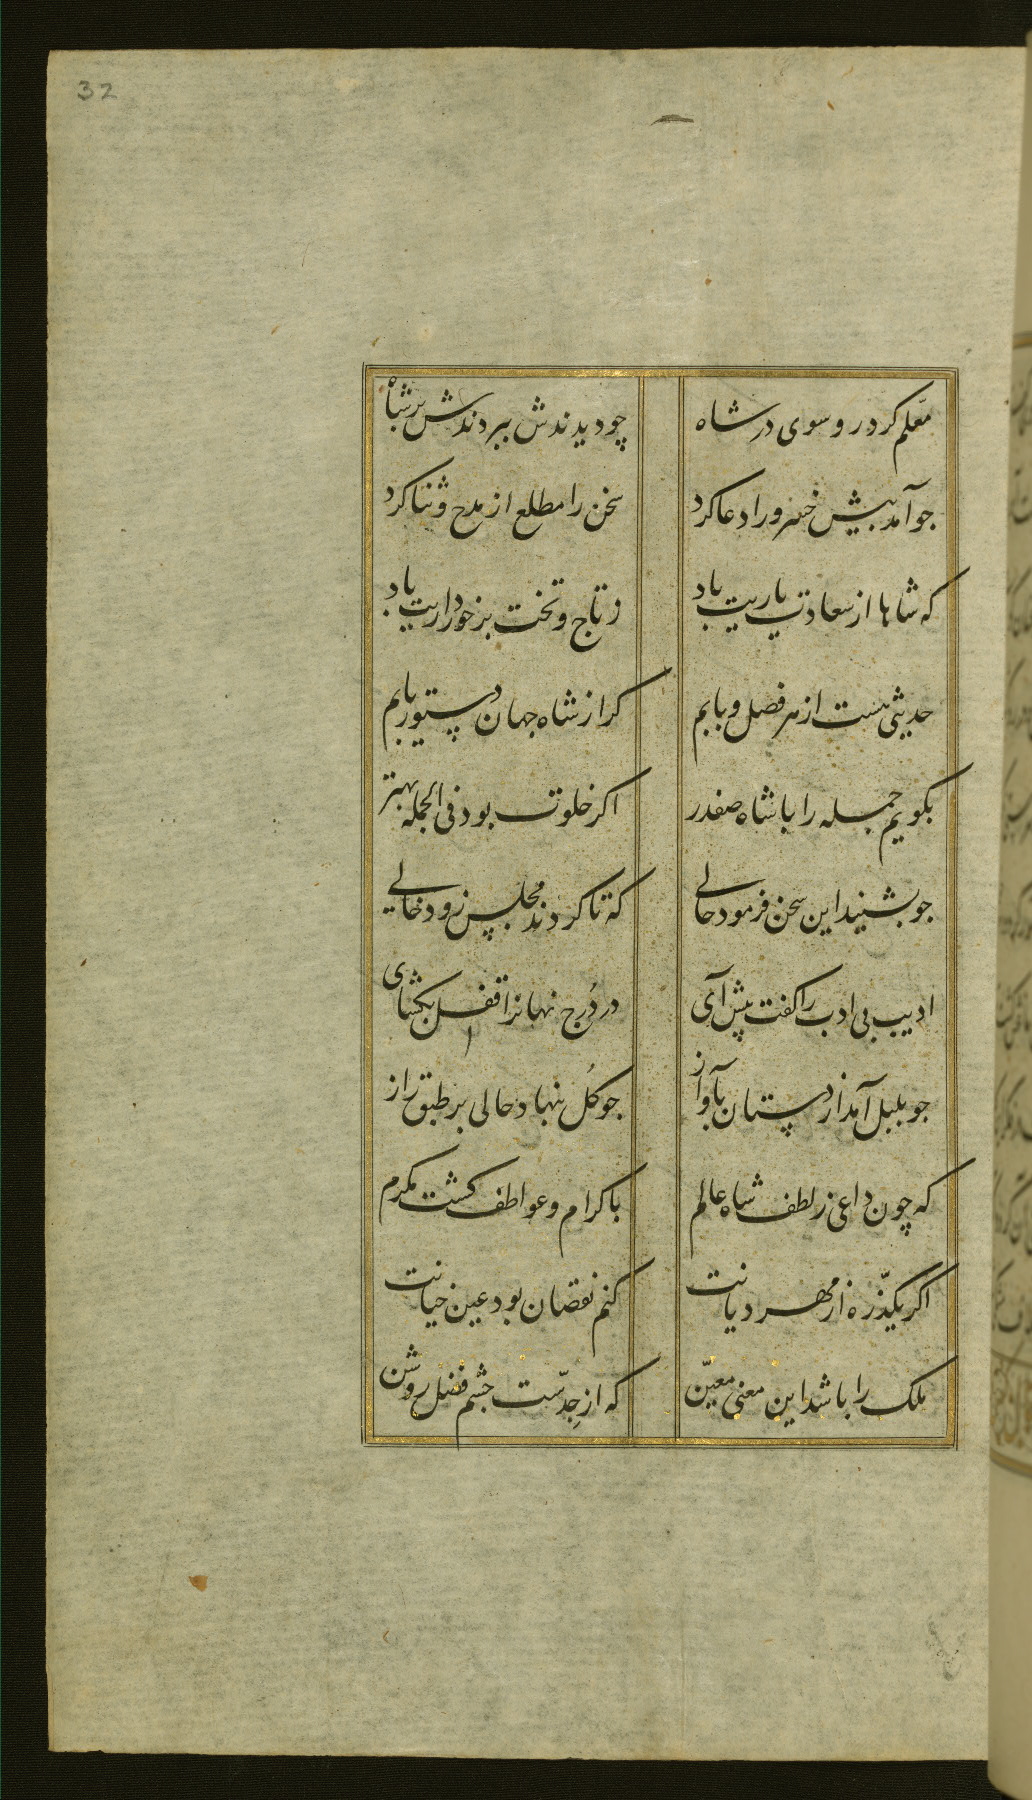 32
معلم کرد رو سوی در شاه چو دیدندش ببردندش بر شاه
جو آمد پیش خسرو را دعا کرد سخن را مطلع از مدح و ثنا کرد
که شاها از سعادت یاریت باد ز تاج و تخت برخورداریت باد
حدیثی هست از هر فصل و بابم کر از شاه جهان دستور یابم
بکویم جمله را با شاه صفدر اکر خلوت بود فی الجمله بهتر
جو بشنید این سخن فرمود حالی که تا کردند مجلس زود خالی
ادیب بی ادب را کفت پیش آی در دُرج نهانرا قفل بکشای
جو بلبل آمد از دستان بآواز جو کُل بنهاد حالی بر طبق راز
که چون داعی ز لطف شاه عالم باکرام و عواطف کشت مکرم
اکر یکذّره از مهر دیانت کنم نقصان بود عین خیانت
ملک را باشد این معنی معیّن که از جدّست جشم فضل روشن